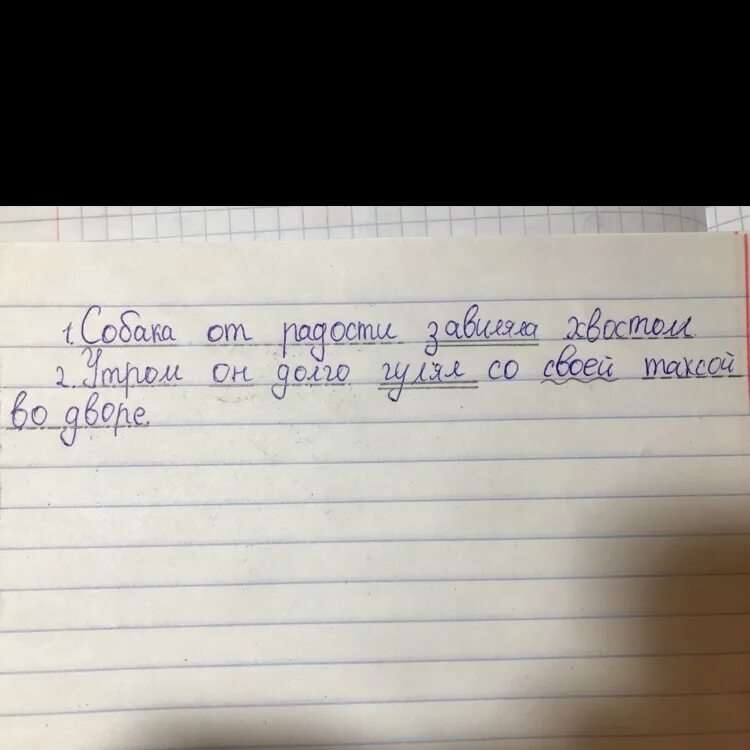 1. Собака от радости завиляла хвостом.
2. Утром он долго гулял со своей таксой
во дворе.